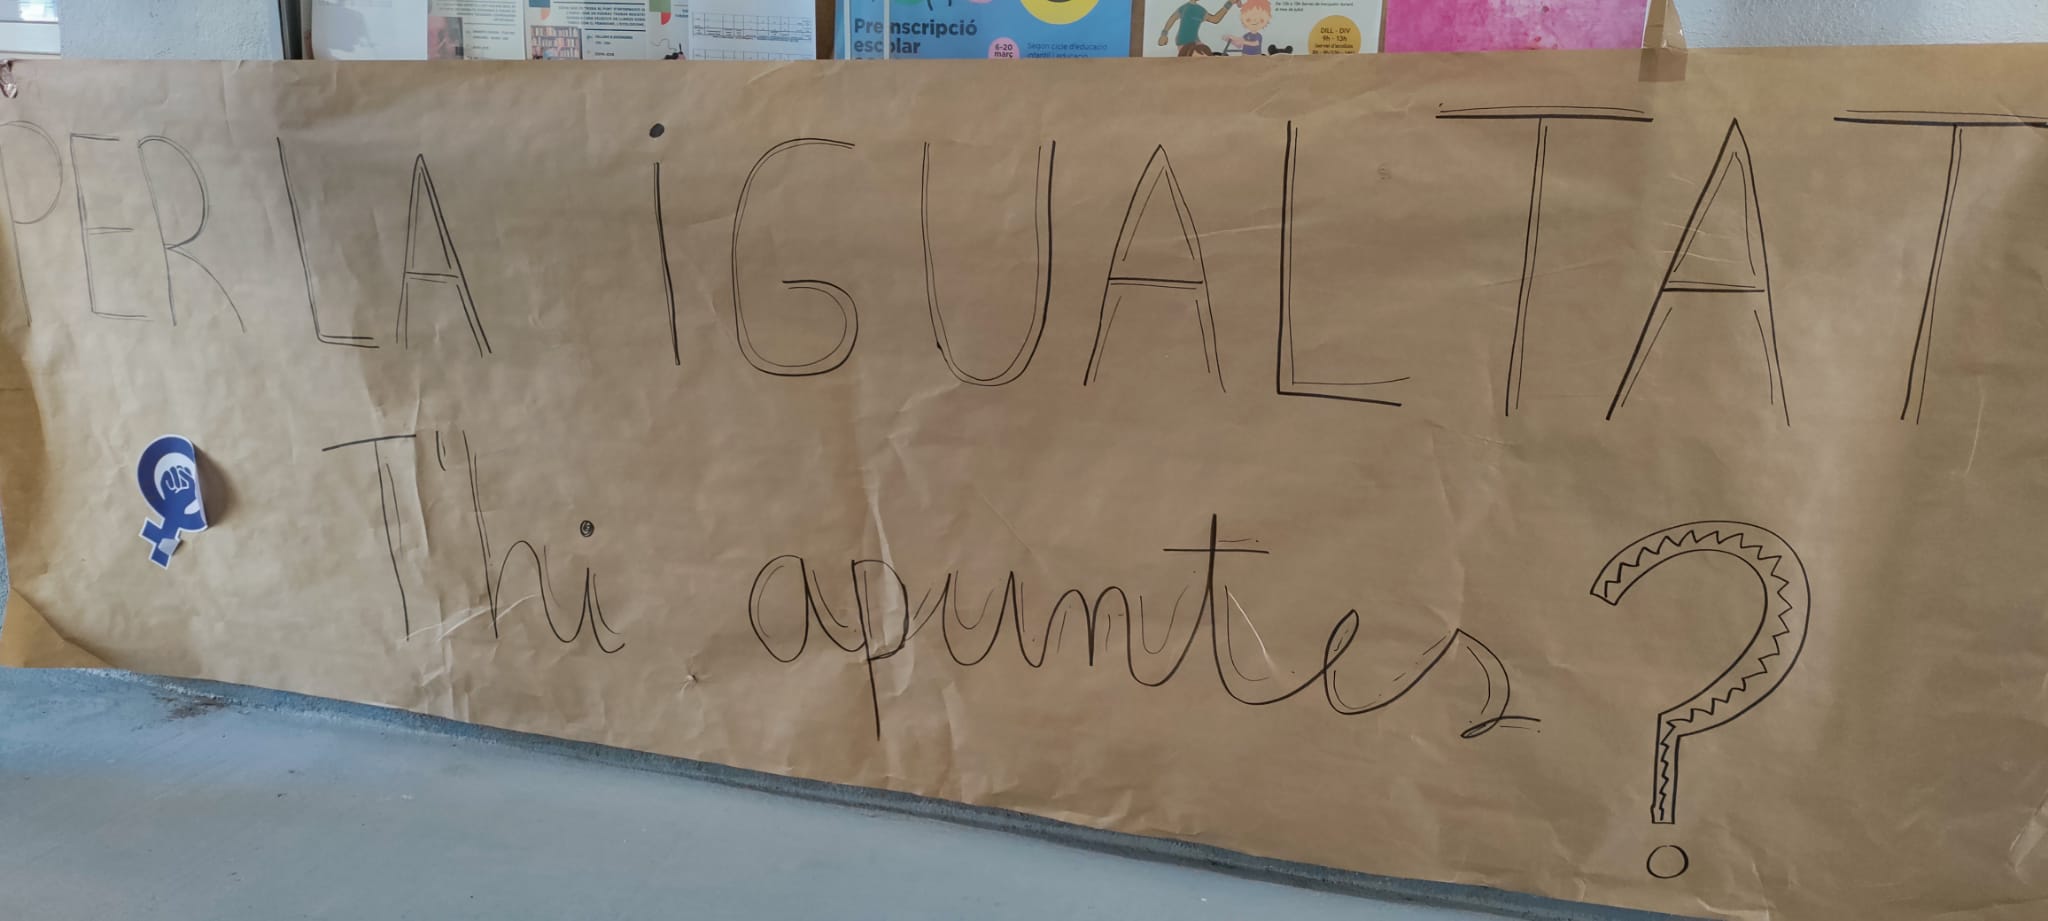 Preinscripció
escolar
6-20
març
Segon cicle d'educació
infantil i educació
DILL - DIV
9h - 13h
PER LA iGUALTAT
T'hi apuntes?